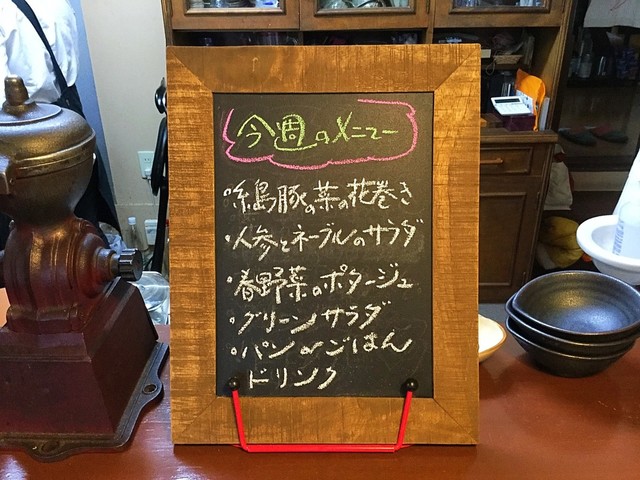 今週のメニュー
・糸島豚の菜の花巻き
・人参とネーブルのサラダ
・春野菜のポタージュ
・グリーンサラダ
・パンorごはん
ドリンク